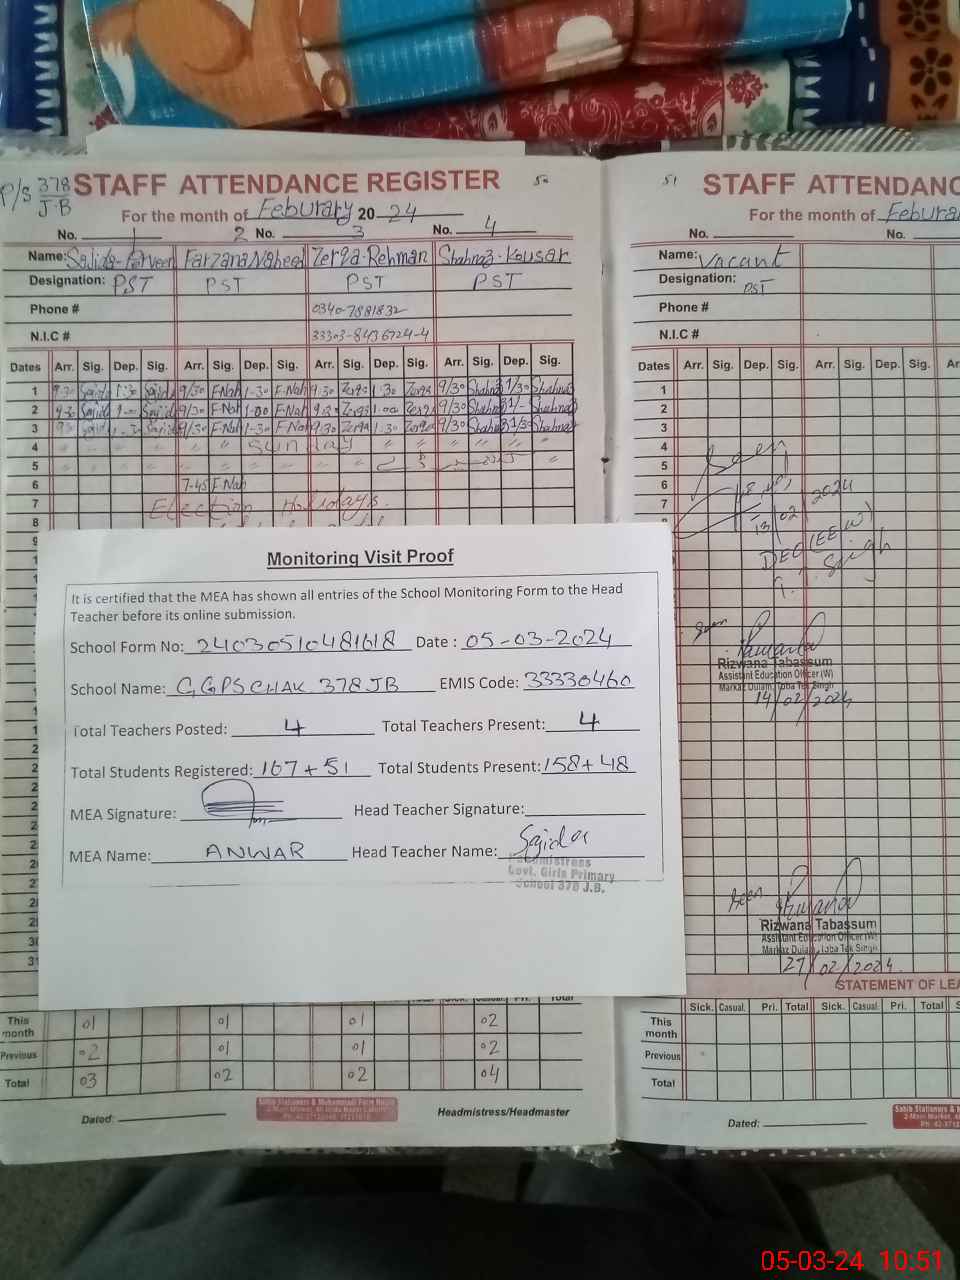 P/S 378 J.B
STAFF ATTENDANCE REGISTER 50
For the month of Feburary 2024
No. 1 2 No. 3 No. 4
Name: Sajida-Perveen Farzana Naheed Zerqa-Rehman Shahnaz-Kousar
Designation: PST PST PST PST
Phone # 0340-7881832
N.I.C # 33303-8436724-4
Dates Arr. Sig. Dep. Sig. Arr. Sig. Dep. Sig. Arr. Sig. Dep. Sig. Arr. Sig. Dep. Sig.
1 9-30 Sajida 1:30 Sajida 9/30 F-Nah 1-30 F-Nah 9:30 Zerqa 1:30 Zerqa 9/30 Shahnaz 1/30 Shahnaz
2 9-30 Sajida 1-00 Sajida 9/30 F-Nah 1-00 F-Nah Zerqa 1:00 Zerqa 9/30 Shahnaz 1/- Shahnaz
3 Sajida Sajida 9/30 F-Nah 1-30 F-Nah 9:30 Zerqa 1:30 Zerqa 9/30 Shahnaz 1/30 Shahnaz
4 " " " " " Sunday " " " " "
5 " " " " " " " " "
6 7-45 F-Nah
7 Election Holidays.
8
9
Monitoring Visit Proof
It is certified that the MEA has shown all entries of the School Monitoring Form to the Head
Teacher before its online submission.
School Form No: 24030510481618 Date : 05-03-2024
School Name: GGPS CHAK 378 JB EMIS Code: 33330460
Total Teachers Posted: 4 Total Teachers Present: 4
Total Students Registered: 167+51 Total Students Present: 158+48
MEA Signature: Head Teacher Signature:
MEA Name: ANWAR Head Teacher Name: Sajida
Headmistress
Govt. Girls Primary
School 378 J.B.
31
This month 01 01 01 02
Previous 02 01 01 02
Total 03 02 02 04
Dated: Headmistress/Headmaster
51 STAFF ATTENDANC
For the month of Feburar
No. No.
Name: Vacant
Designation: PST
Phone #
N.I.C #
Dates Arr. Sig. Dep. Sig. Arr. Sig. Dep. Sig. Ar
1
2
3
4
5
6
7
Seen
13/02/2024
DEO (EE W)
T. T. Singh
Seen
Rizwana Tabassum
Assistant Education Officer (W)
Markaz Dulam, Toba Tek Singh
14/02/2024
Seen
Rizwana Tabassum
Assistant Education Officer (W)
Markaz Dulam, Toba Tek Singh
27/02/2024
STATEMENT OF LEA
Sick. Casual. Pri. Total Sick. Casual. Pri. Total S
This month
Previous
Total
Dated:
05-03-24 10:51